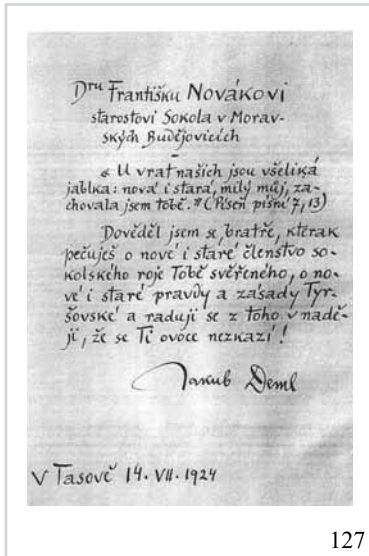 Dru Františku Novákovi
starostovi Sokola v Morav-
ských Budějovicích
« U vrat našich jsou všeliká
jablka: nová i stará, milý můj, za-
chovala jsem tobě. » (Píseň písní 7, 13)
Dověděl jsem se, bratře, kterak
pečuješ o nové i staré členstvo so-
kolského roje Tobě svěřeného, o no-
vé i staré pravdy a zásady Tyr-
šovské a raduji se z toho v nadě-
ji, že se Ti ovoce nezkazí!
Jakub Deml
V Tasově 14. VII. 1924
127